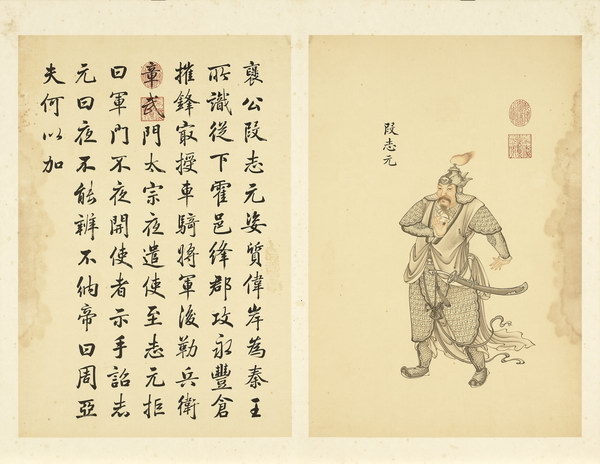 襄公段志元姿質偉岸為秦王
所識從下霍邑絳郡攻永豐倉
摧鋒㝡授車騎將軍後勒兵衛
章武門太宗夜遣使至志元拒
曰軍門不夜開使者示手詔志
元曰夜不能辨不納帝曰周亞
夫何以加
段志元